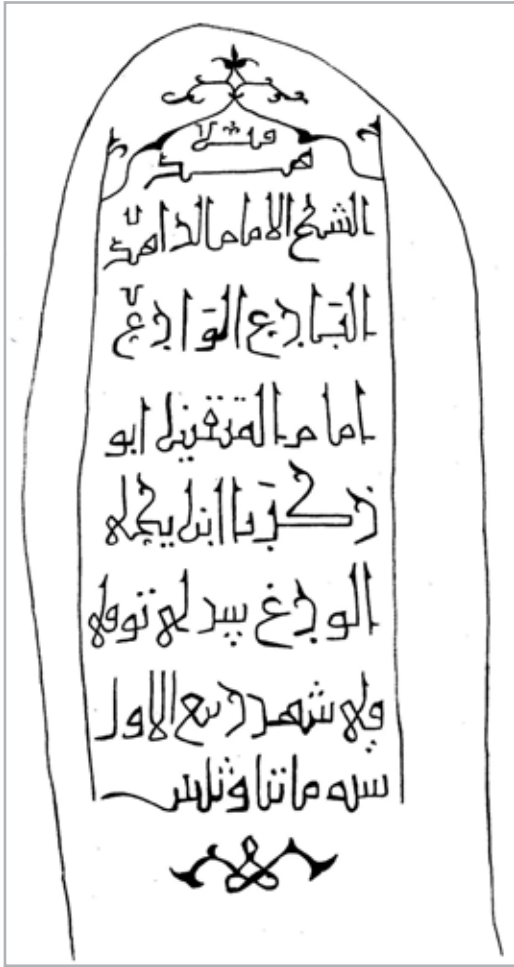 الشيخ الامام الزاهد
البارع الوارع
امام المتقين ابو
زكريا ابن يحيى
توفى
فى شهر ربيع الاول
سنه ماتنا وثلثين